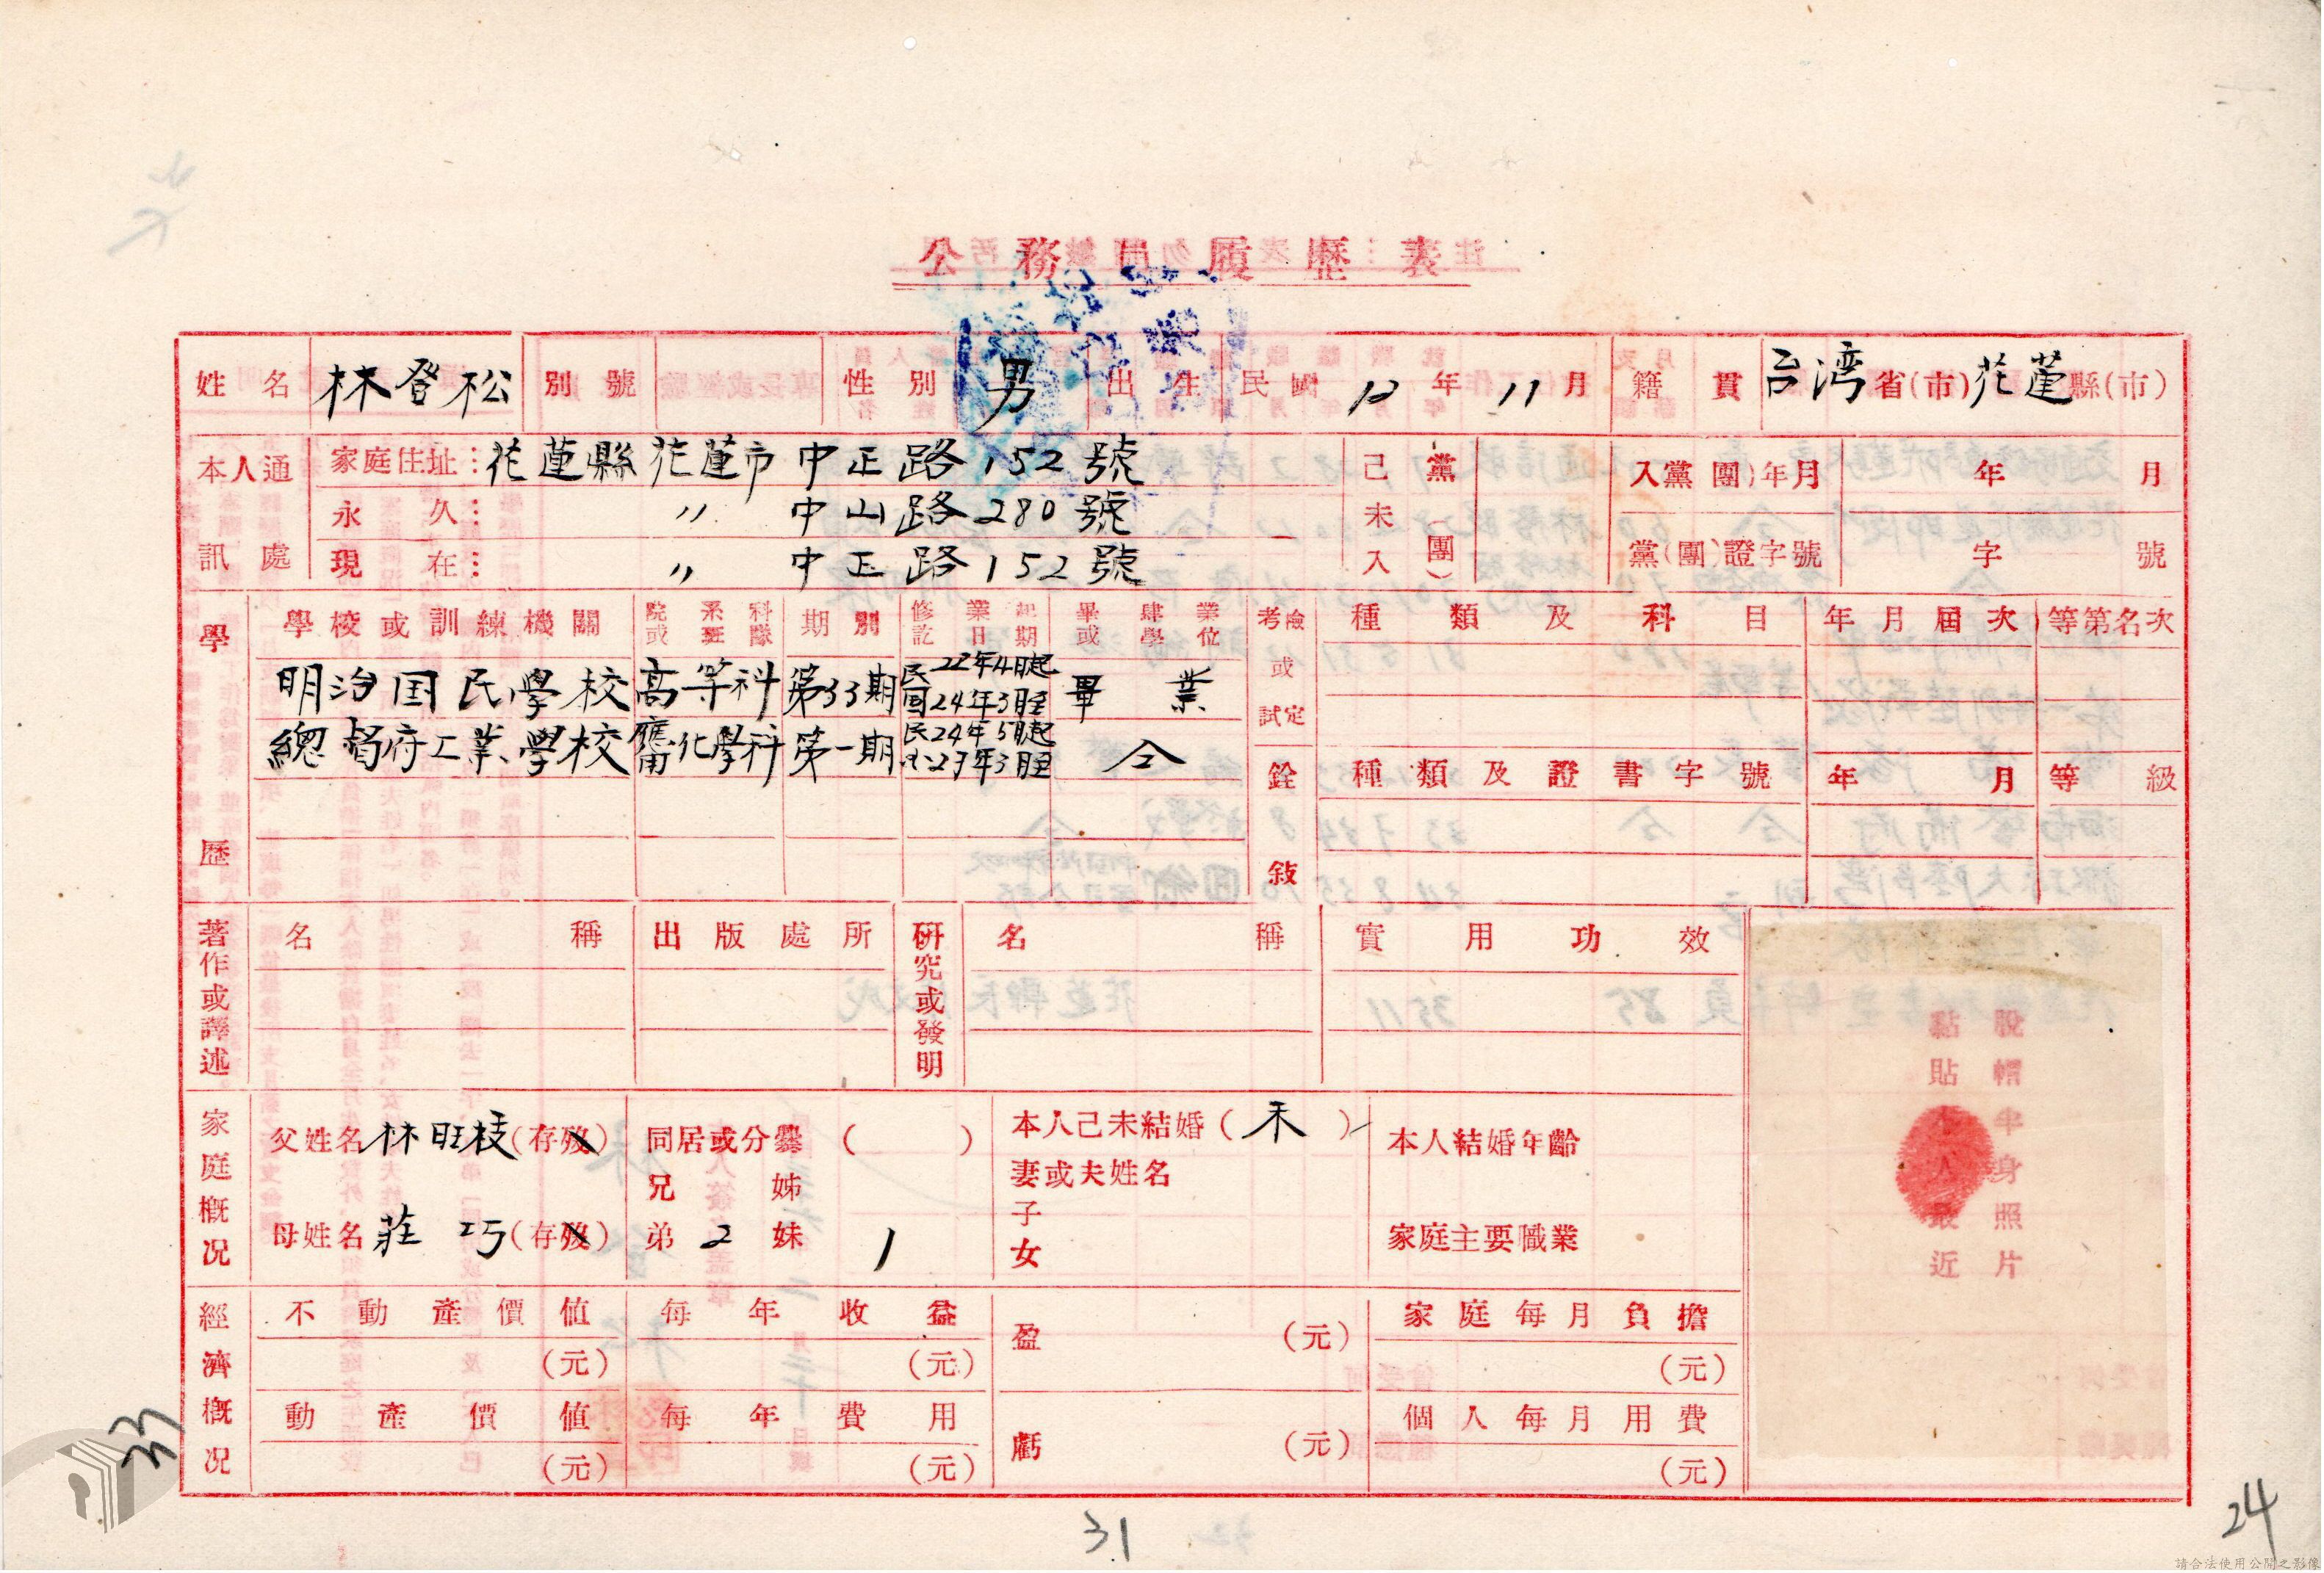 公務員履歷表
姓名 林登松 別號 性別 男 出生 民國 10年11月 籍貫 台湾省(市)花蓮縣(市)
本人通訊處
家庭住址：花蓮縣花蓮市中正路152號
永久：〃中山路280號
現在：〃中正路152號
己未入黨(團)
入黨(團)年月 年 月
黨(團)證字號 字 號
學歷
學校或訓練機關 院或系班科隊 期別 修業起訖日期 畢或肄業學位
明治国民學校 高等科 第33期 民國22年4月起24年3月至 畢業
總督府工業學校 應用化學科 第一期 民24年5月起27年3月至 仝
考試或檢定 種類及科目 年月屆次 等第名次
銓敍 種類及證書字號 年月 等級
著作或譯述 名稱 出版處所
研究或發明 名稱 實用功效
家庭概況
父姓名 林旺枝 (存歿)
母姓名 莊巧 (存歿)
同居或分爨( )
兄弟 2 姊妹 1
本人己未結婚(未)
妻或夫姓名
子女
本人結婚年齡
家庭主要職業
脫帽半身照片
黏貼本人最近
經濟概況
不動產價值 (元)
每年收益 (元)
盈 (元)
家庭每月負擔 (元)
動產價值 (元)
每年費用 (元)
虧 (元)
個人每月用費 (元)
31
24
請合法使用公開之影像